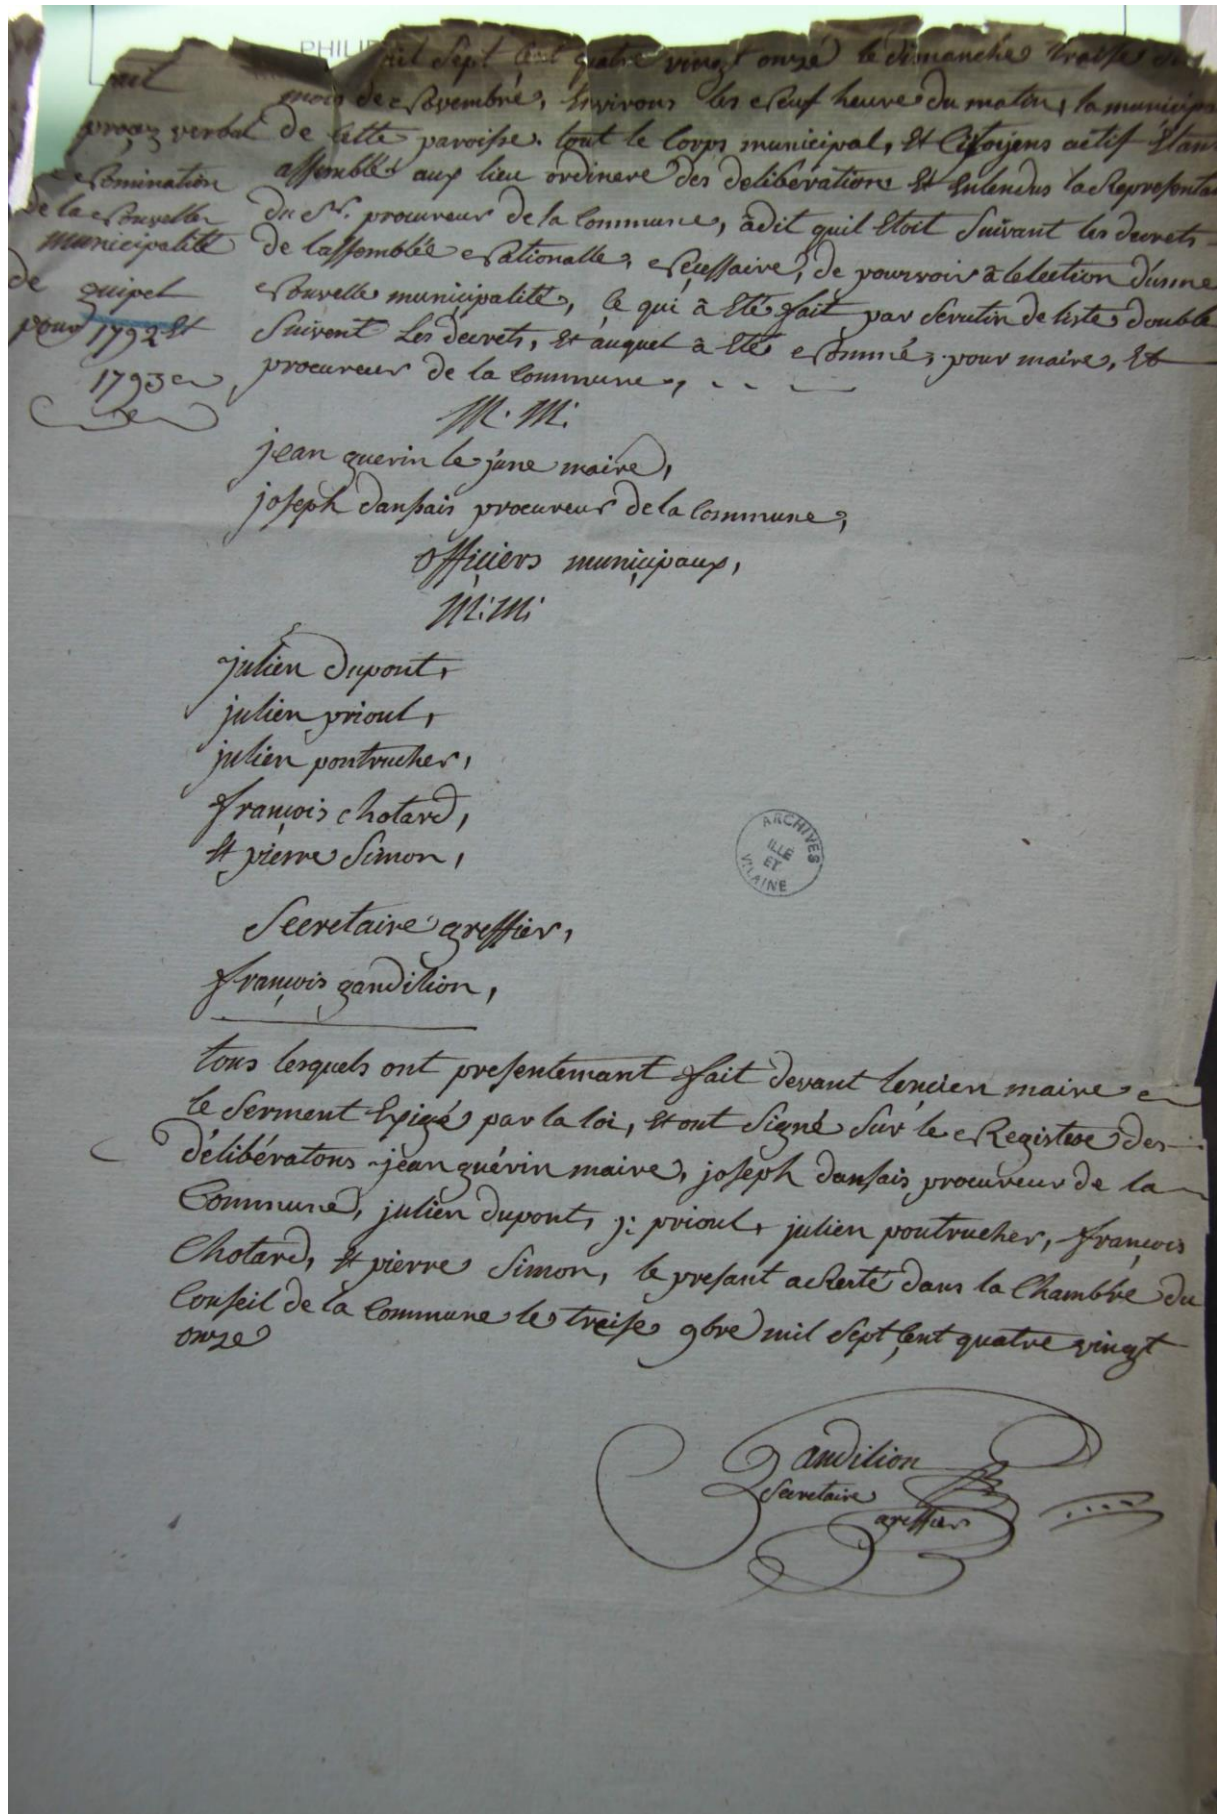 PHILI
mil Sept Cent quatre vingt onze le dimanche traise du
mois de Novembre, Environs les Neuf heure du matin, la municipa
de Cette paroisse. tout le Corps municipal, Et Citoyens actif Etans
assemblé aux lieu ordinere des deliberations Et Entendus la Represental
du Sr. procureur de la Commune, à dit quil Etoit Suivant les decrets
de lassemblée Nationalle, Nécessaire, de pourvoir à lelection d'unne
Nouvelle municipalité, Ce qui à Eté fait par Scrutin de liste double
Suivent Les decrets, Et auquel à Eté Nommé, pour maire, Et
procureur de la Commune,
ait
proçaz verbal
Nomination
de la Nouvelle
municipalité
de quipel
pour 1792 Et
1793
M. M.
jean guerin le jûne maire,
joseph dansais procureur de la Commune,
officiers municipaux,
M. M.
julien dupont,
julien prioul,
julien pontrucher,
françois chotard,
Et pierre Simon,
ARCHIVES
ILLE
ET
VILAINE
Secretaire greffier,
françois gandilion,
tous lesquels ont presentemant fait devant l'encien maire
le Serment Exigé par la loi, Et ont Signé Sur le Registere des
délibératons jean guérin maire, joseph dansais procureur de la
Commune, julien dupont, j: prioul, julien pontrucher, françois
Chotard, Et pierre Simon, le presant aresté dans la Chambre du
Conseil de la Commune le traise 9bre mil Sept Cent quatre vingt
onze
Gandilion
Secretaire
greffier